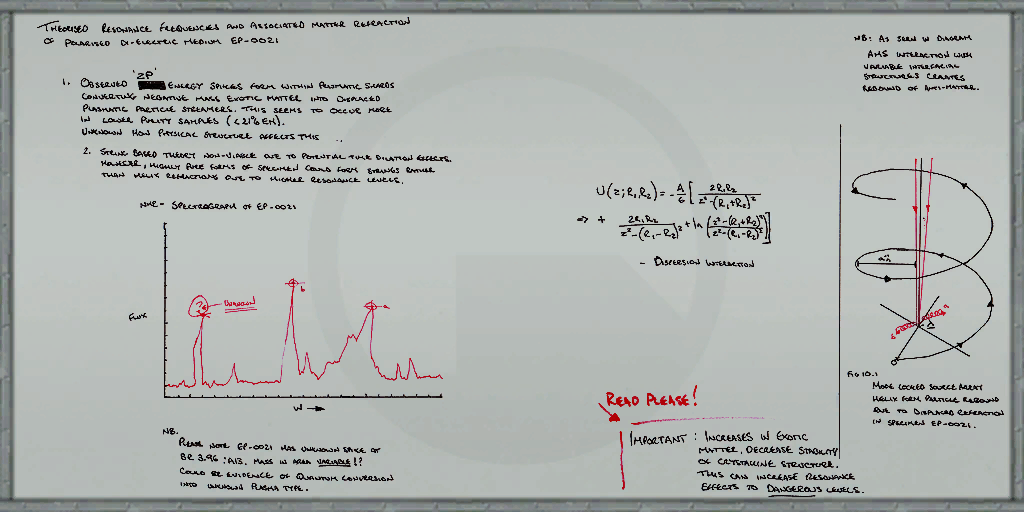 Theorised Resonance Frequencies and Associated Matter Refraction
of Polarised Di-Electric Medium EP-0021
1. Observed 'ZP' Energy Spikes form within Plasmatic Shards
converting negative mass exotic matter into displaced
plasmatic particle streamers. This seems to occur more
in lower purity samples (<21% EH).
Unknown how physical structure affects this ..
2. String based theory non-viable due to potential time dilation effects.
However, highly pure forms of specimen could form strings rather
than helix refractions due to higher resonance levels.
- Spectrograph of EP-0021
Flux
?
Unknown
b
a
W →
NB.
Please note EP-0021 has unknown spike at
BR 3.96 : A13. Mass in area variable!?
Could be evidence of quantum conversion
into unknown plasma type.
U(z;R₁,R₂) = -A/6 [ 2R₁R₂ / z² - (R₁+R₂)²
=> + 2R₁R₂ / z² - (R₁-R₂)² + ln ( z² - (R₁+R₂)² / z² - (R₁-R₂)² ) ]
- Dispersion Interaction
Read Please!
Important : Increases in exotic
matter, decrease stability
of crystaline structure.
This can increase resonance
effects to dangerous levels.
NB: As seen in diagram
AMS interaction with
variable interfacial
structures creates
rebound of anti-matter.
Fig 10.1
Mode locked source array
helix form particle rebound
due to displaced refraction
in specimen EP-0021.